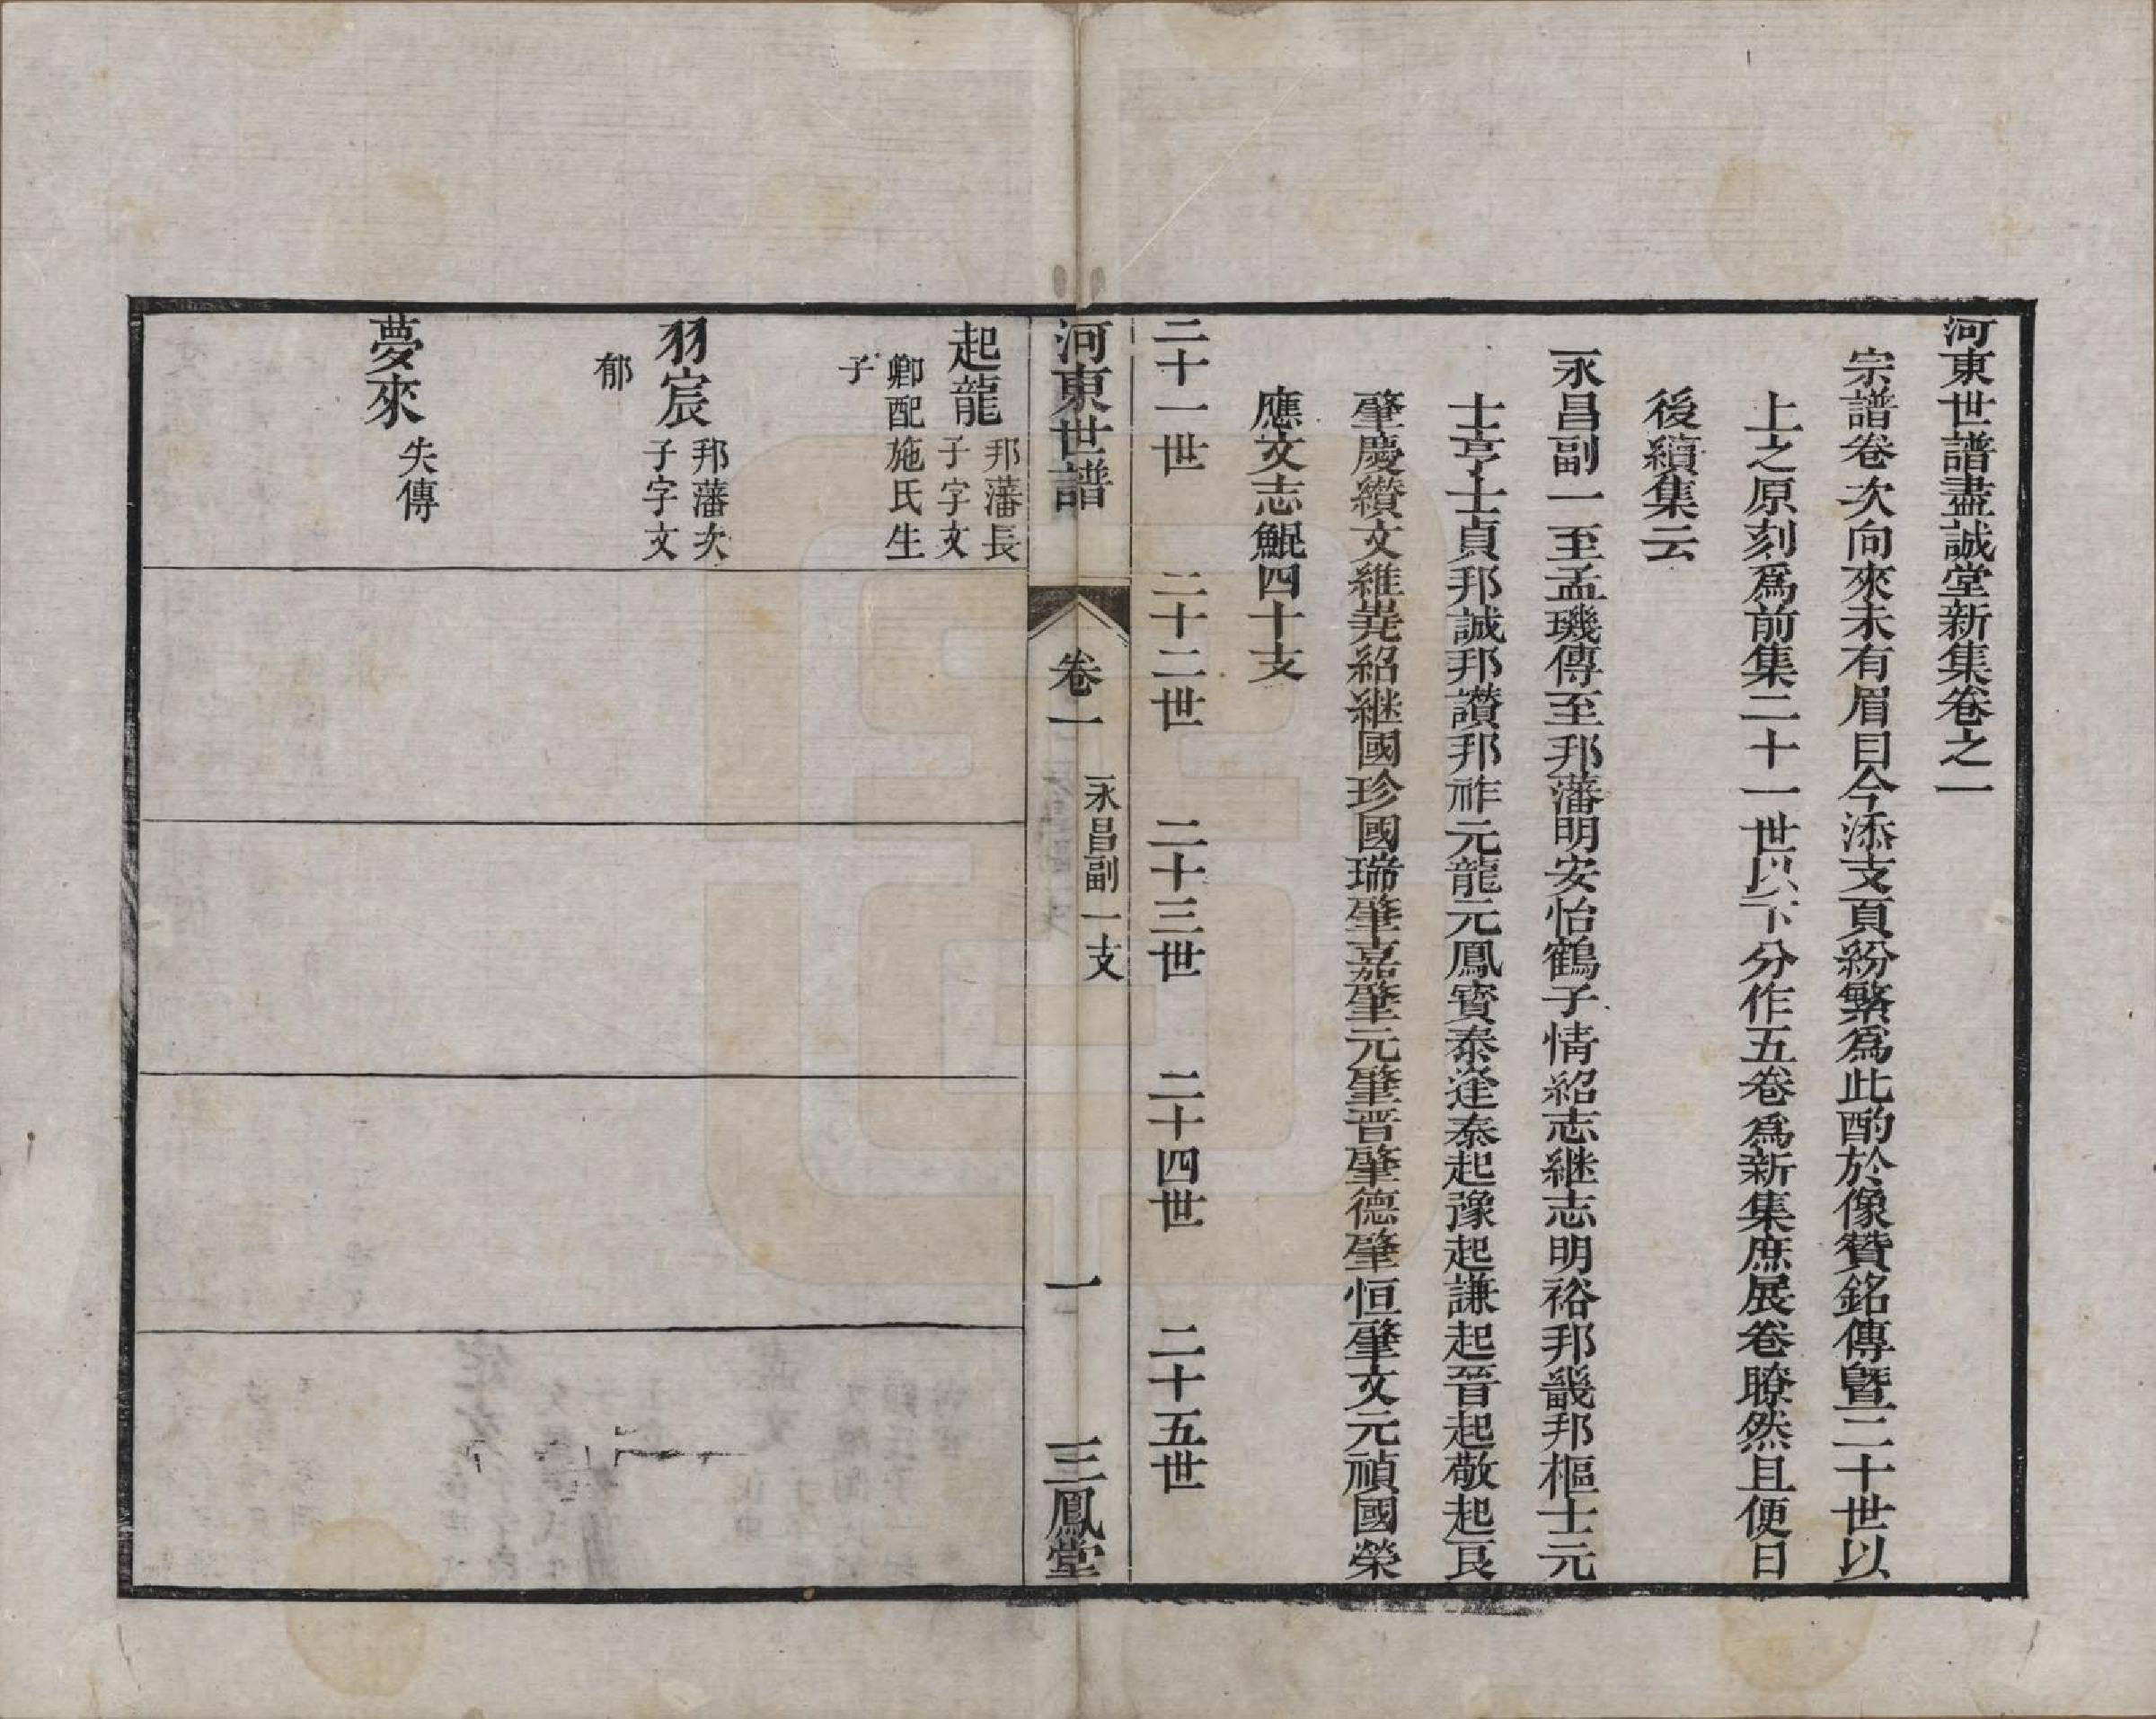 河東世譜盡誠堂新集卷之一
宗譜卷次向來未有眉目今添支頁紛繁爲此酌於像贊銘傳曁二十世以
上之原刻爲前集二十一世以下分作五卷爲新集庶展卷瞭然且便日
後續集云
永昌副一至孟璣傳至邦藩明安怡鶴子情紹志継志明裕邦畿邦樞士元
士亨士貞邦誠邦讚邦祚元龍元鳳寳泰逢泰起豫起謙起晉起敬起艮
肇慶纘文維嵓紹継國珍國瑞肇嘉肇元肇晋肇德肇恒肇文元禎國榮
應文志鯤四十支
二十一世　二十二世　二十三世　二十四世　二十五世
河東世譜　卷一　永昌副一支　一　三鳳堂
起龍　邦藩長
子字文
卿配施氏生
子
羽宸　邦藩次
子字文
郁
夢來　失傳